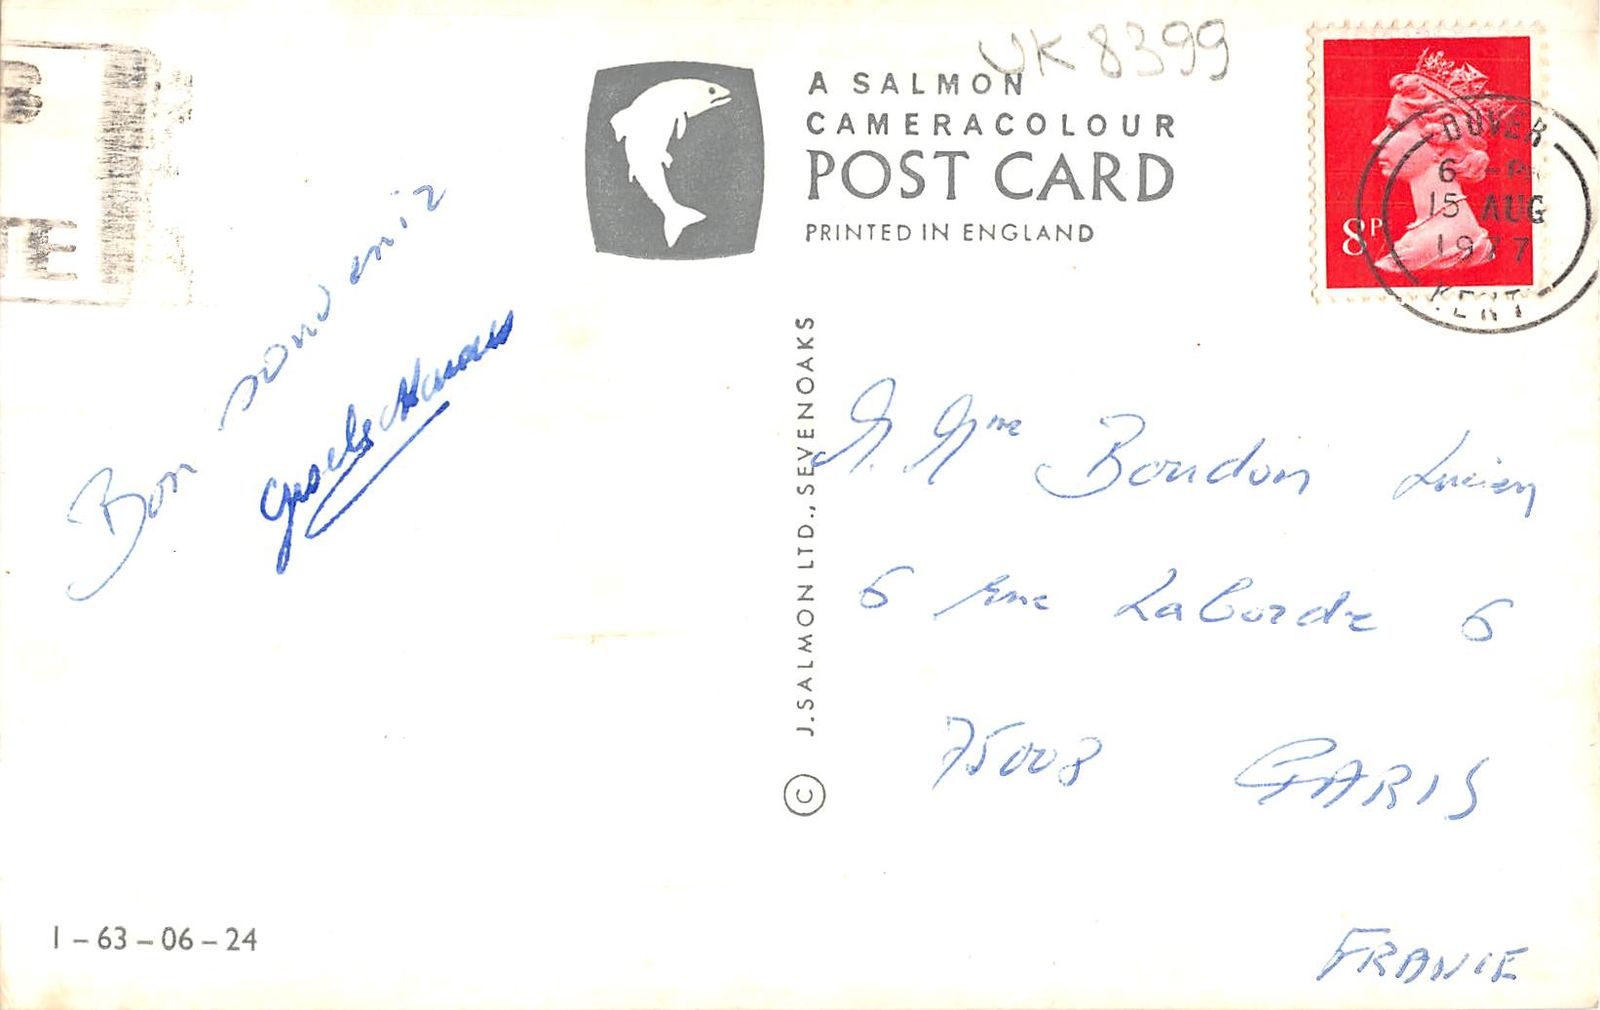 UK 8399
A SALMON
CAMERACOLOUR
POST CARD
PRINTED IN ENGLAND
8P
DOVER
6 -PM
15 AUG
1977
KENT
TE
Bon souvenir
© J.SALMON LTD., SEVENOAKS
M. Mme Boudon Lucien
6 rue Laborde 6
75008 PARIS
FRANCE
1 - 63 - 06 - 24